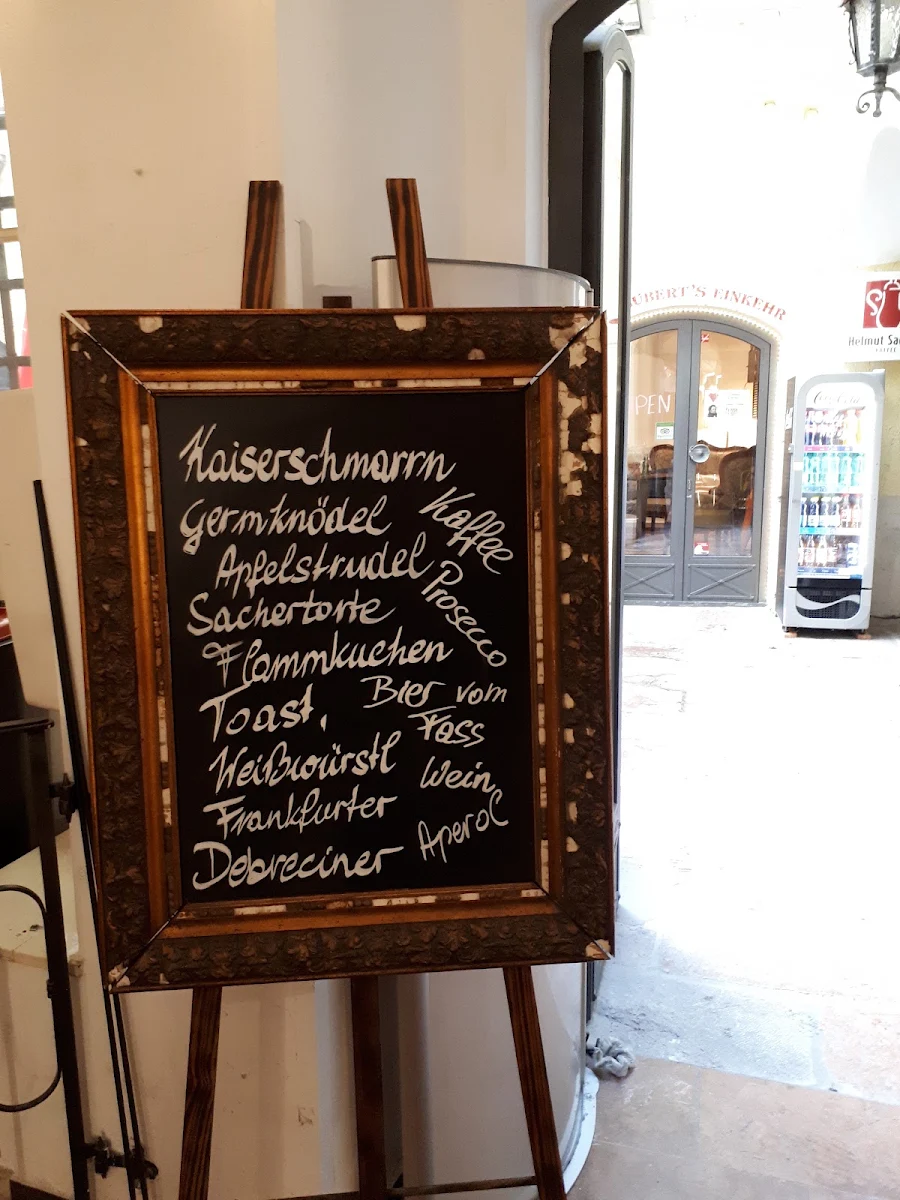 Kaiserschmarrn
Germknödel
Apfelstrudel
Sachertorte
Flammkuchen
Toast,
Weißwürstl
Frankfurter
Debreciner
Kaffee
Prosecco
Bier vom
Fass
Wein
Aperol
UBERT'S EINKEHR
PEN
Helmut Sa
KAFFEE
Coca-Cola